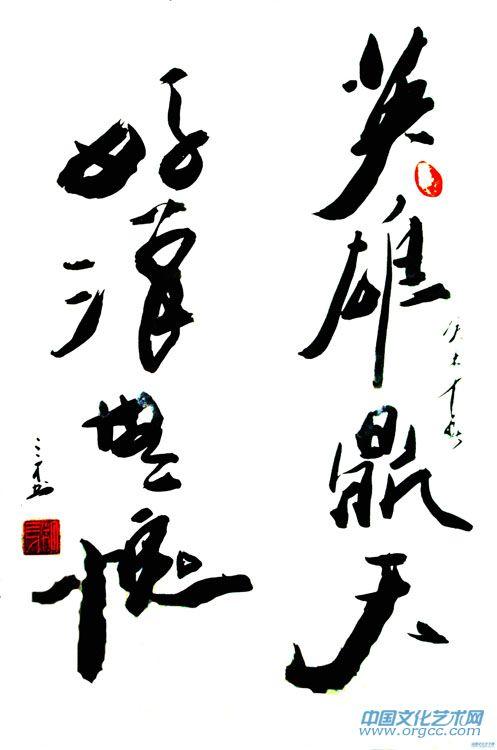 英雄鼎天
好漢無愧
中国文化艺术网
www.orgcc.com